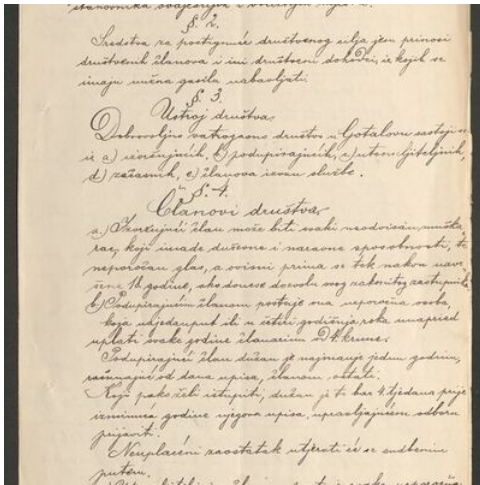 §. 2.
Sredstva za postignuće društvenog cilja jesu prinosi
društvenih članova i ini društveni dohodci, iz kojih se
imaju nužna gasila nabavljati.
§. 3.
Ustroj društva.
Dobrovoljno vatrogasno društvo u Gotalovu sastoji se
iz a) izvršujućih, b) podupirajućih, c) utemeljiteljnih,
d) začasnih, e) članova izvan službe.
§. 4.
Članovi društva.
a.) Izvršujući član može biti svaki neodvisan muška-
rac, koji imade duševne i naravne sposobnosti, te
neporočan glas, a ovisni prima se tek nakon navr-
šene 18. godine, ako donese dozvolu svog zakonitog zastupnika.
b.) Podupirajućim članom postaje ona neporočna osoba,
koja udjedanput ili u četiri godišnja roka unapried
uplati svake godine članarinu od 4. krune.
Podupirajući član dužan je najmanje jednu godinu,
računajuć od dana upisa, članom ostati.
Koji pako želi istupiti, dužan je to bar 4. tjedana prije
izminuća godine njegova upisa, upravljajućem odboru
prijaviti.
Neuplaćeni zaostatak utjerati će se sudbenim
putem.